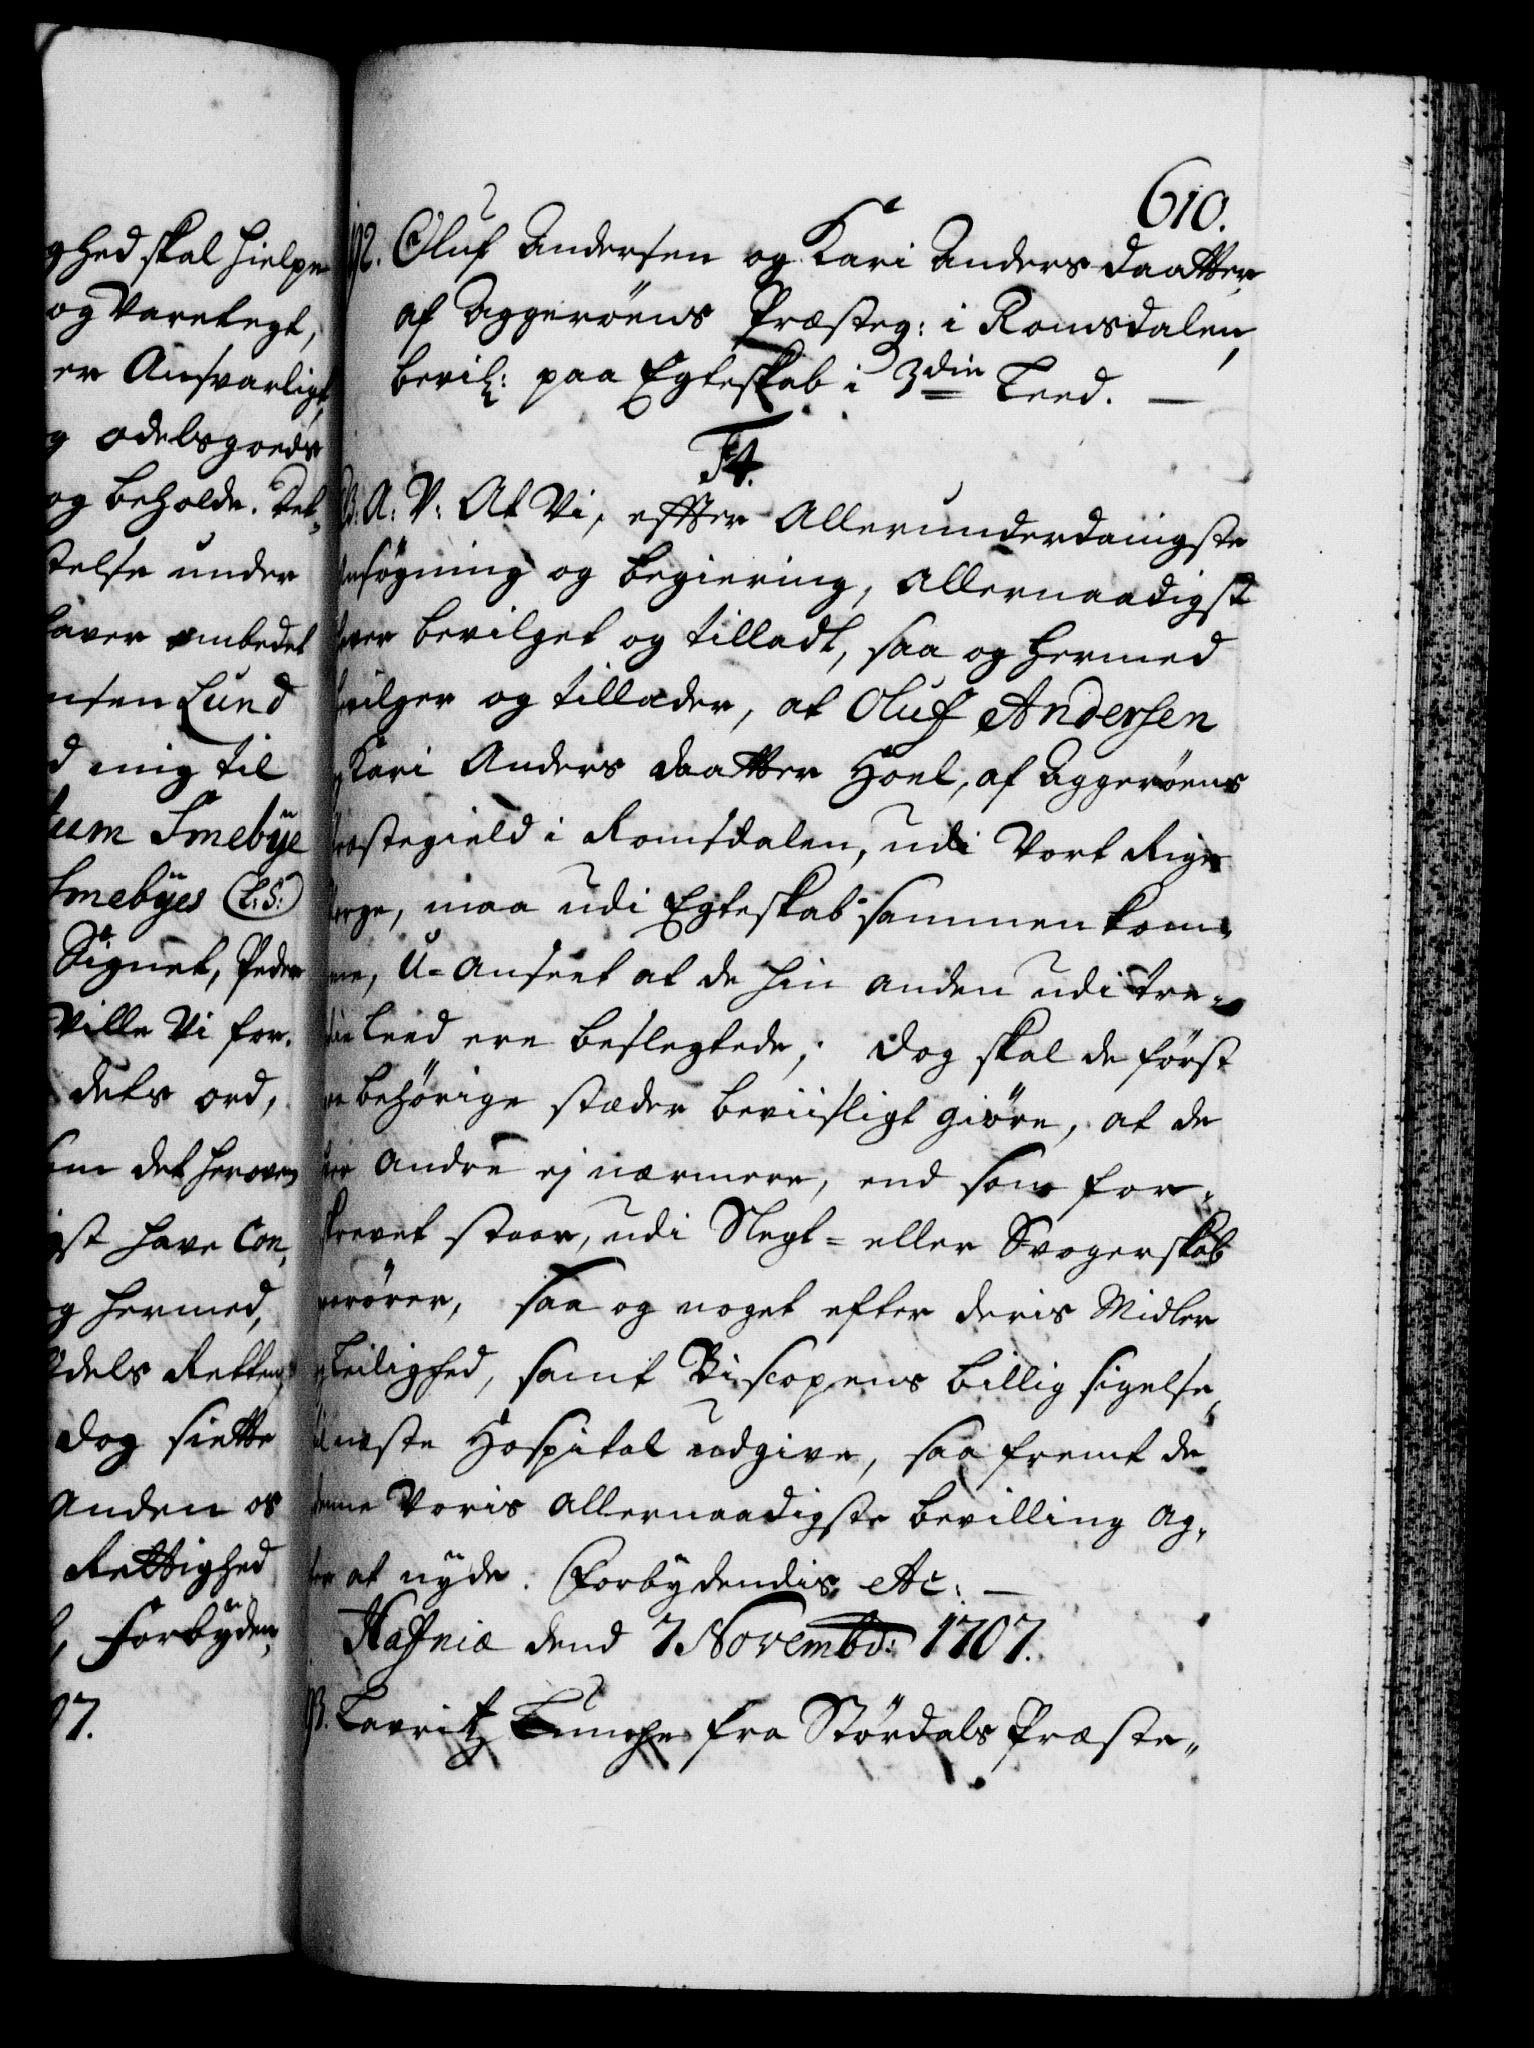 ghed skal hielpe
og Varetegt,
er Ansvarligt,
g odelsgoeds
og beholde. Det
telse under
haver ombedet
nsen Lund
d mig til
kum Smebÿe
Smebÿes (L:S:)
Signet, Peder
Ville Vi for,
dets ord,
det heroven
st have Con,
g hermed,
Odels Retten
dog siette
Anden os
Rettighed
, Forbÿden,
07.
610.
192. Oluf Andersen og Kari Anders daatter
af Aggeröens Præsteg: i Romsdalen,
bevil: paa Egteskab i 3die Leed. —
F4.
G: A: V: At Vi, effter Allerunderdanigste
Ansögning og begiering, allernaadigst
haver bevilget og tilladt, saa og hermed
bevilger og tillader, at Oluf Andersen
og Kari Anders daatter Hoel, af Aggeröens
Præstegield i Romsdalen, udi Vort Rige
Norge, maa udi Egteskab sammen kom,
me, U-anseet at de hin anden udi tre,
die Leed ere beslegtede; dog skal de först
paa behörige stæder beviisligt giöre, at de
hver andre ej nærmere, end som for,
skrevet staar, udi Slegt- eller Svogerskab
paarörer, saa og noget efter deris Midler
og Leilighed, samt Biscopens billig sigelse,
til næste Hospital udgive, saa fremt de
denne Voris allernaadigste bevilling ag,
ter at nÿde. Forbÿdendis Etc: —
Hafniæ dend 7 Novembr: 1707.
193. Lavritz fra Stördals Præste,,